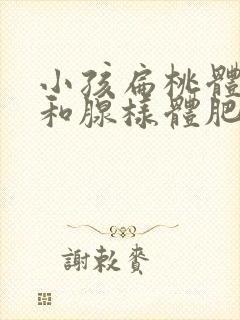 小孩扁桃體
和腺樣體肥
謝敕賚